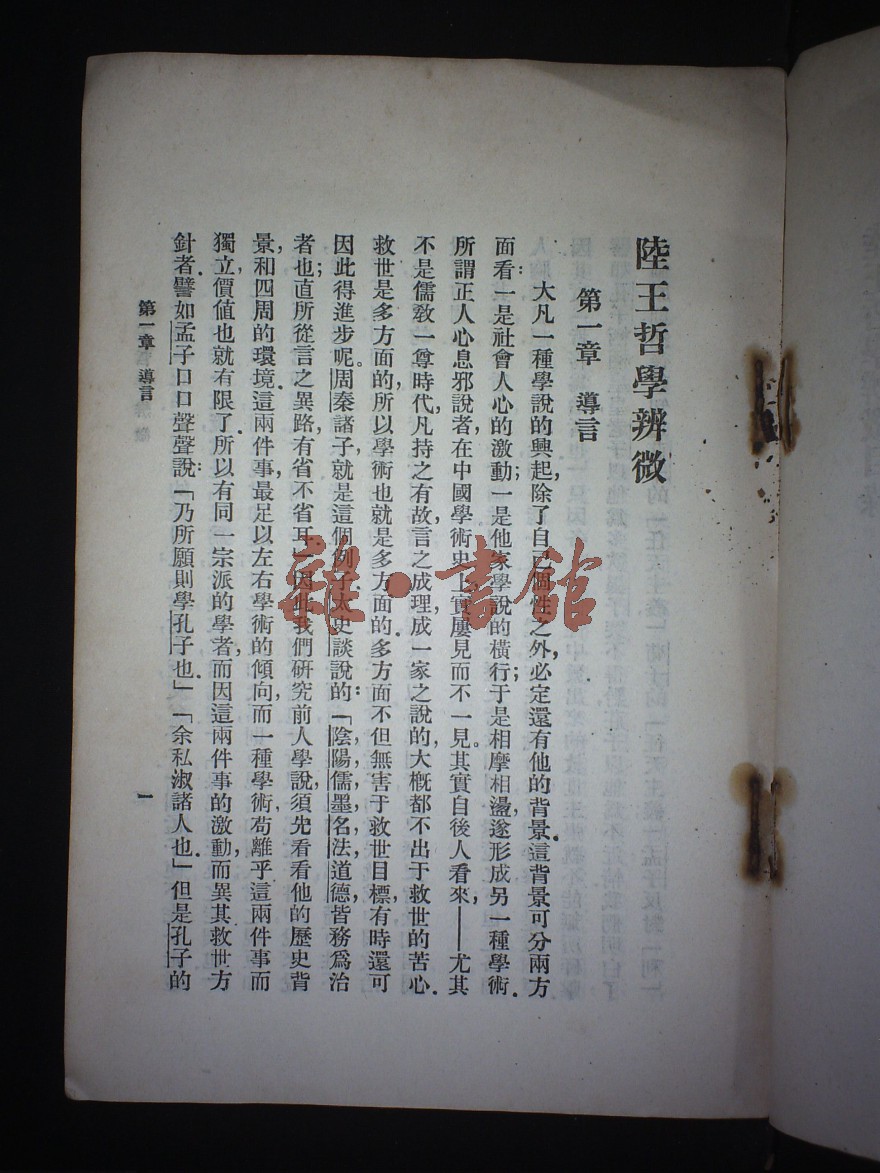 陸王哲學辨微
第一章 導言
大凡一種學說的興起,除了自己個性之外,必定還有他的背景.這背景可分兩方
面看:一是社會人心的激動;一是他家學說的橫行;于是相摩相盪,遂形成另一種學術.
所謂正人心息邪說者,在中國學術史上實屢見而不一見.其實自後人看來,——尤其
不是儒敎一尊時代,凡持之有故,言之成理,成一家之說的,大槪都不出于救世的苦心.
救世是多方面的,所以學術也就是多方面的.多方面不但無害于救世目標,有時還可
因此得進步呢。周秦諸子,就是這個例子.太史談說的:「陰陽,儒,墨,名,法,道德,皆務爲治
者也;直所從言之異路,有省不省耳」因此我們研究前人學說,須先看看他的歷史背
景,和四周的環境.這兩件事,最足以左右學術的傾向,而一種學術,苟離乎這兩件事,而
獨立,價值也就有限了.所以有同一宗派的學者,而因這兩件事的激動,而異其救世方
針者.譬如孟子口口聲聲說:「乃所願則學孔子也」「余私淑諸人也.」但是孔子的
第一章 導言
一
雜·書館